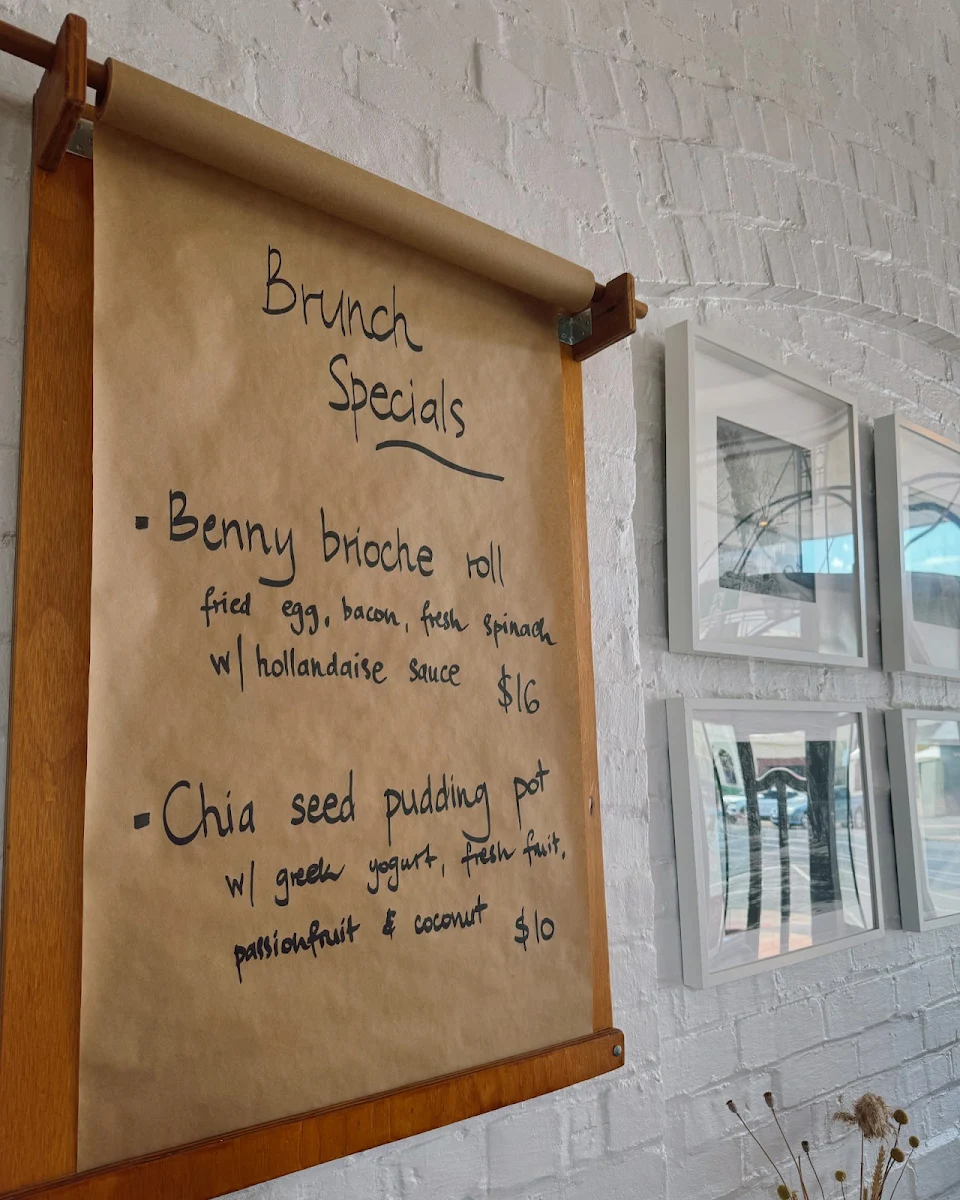 Brunch
Specials
- Benny brioche roll
fried egg, bacon, fresh spinach
w/ hollandaise sauce $16
- Chia seed pudding pot
w/ greek yogurt, fresh fruit,
passionfruit & coconut $10